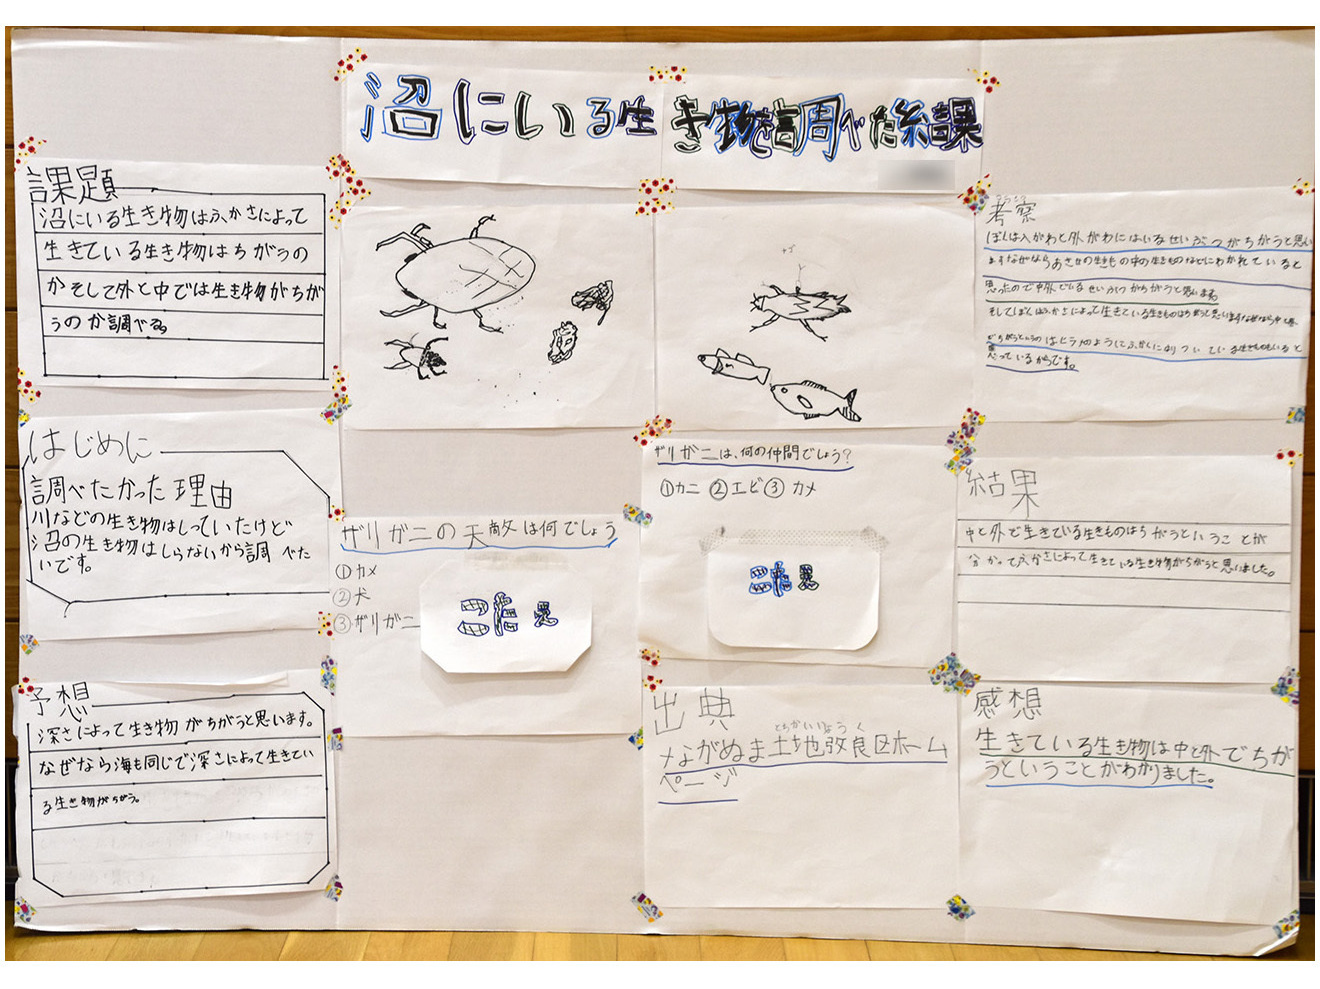 沼にいる生き物を調べた結果
課題
沼にいる生き物はふかさによって
生きている生き物はちがうの
かそして外と中では生き物がちが
うのか調べる。
はじめに
調べたかった理由
川などの生き物はしっていたけど
沼の生き物はしらないから調べた
いです。
予想
深さによって生き物がちがうと思います。
なぜなら海も同じで深さによって生きてい
る生き物がちがう。
ザリガニの天敵は何でしょう
①カメ
②犬
③ザリガニ
こたえ
ザリガニは、何の仲間でしょう?
①カニ ②エビ ③カメ
こたえ
出典
とちかいりょうく
ながぬま土地改良区ホーム
ページ
考察
ぼくは入がわと外がわにはいるせいぶつがちがうと思い
ますなぜならあさせの生きもの中の生きものなどにわかれていると
思ったので中外でいるせいぶつがちがうと思います。
そしてぼくはふかさによって生きている生きものはちがうと思います
っているからです。
結果
中と外で生きている生きものはちがうということが
分かってふかさによって生きている生き物がちがうと思いました。
感想
生きている生き物は中と外でちが
うということがわかりました。